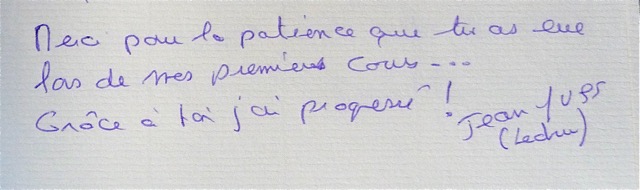 Merci pour la patience que tu as eue
lors de mes premiers cours ---
Grâce à toi j'ai progressé !
Jean Yves